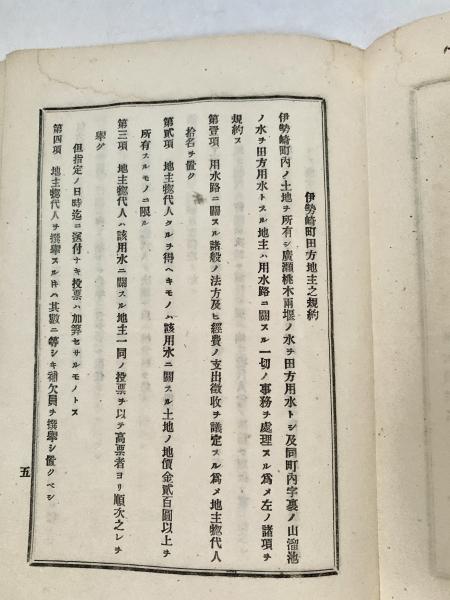 伊勢崎町田方地主之規約
伊勢崎町內ノ土地ヲ所有シ廣瀨桃木兩堰ノ水ヲ田方用水トシ及同町內字裏ノ山溜池
ノ水ヲ田方用水トスル地主ハ用水路ニ關スル一切ノ事務ヲ處理スル爲メ左ノ諸項ヲ
規約ス
第壹項 用水路ニ關スル諸般ノ法方及ヒ經費ノ支出徵收ヲ議定スル爲メ地主惣代人
拾名ヲ置ク
第貳項 地主惣代人タルヲ得ヘキモノハ該用水ニ關スル土地ノ地價金貳百圓以上ヲ
所有スルモノニ限ル
第三項 地主惣代人ハ該用水ニ關スル地主一同ノ投票ヲ以テ高票者ヨリ順次之レヲ
擧ク
但指定ノ日時迄ニ送付ナキ投票ハ加算セサルモノトス
第四項 地主惣代人ヲ撰擧スルトキハ其數ニ等シキ補欠員ヲ撰擧シ置クベシ
五